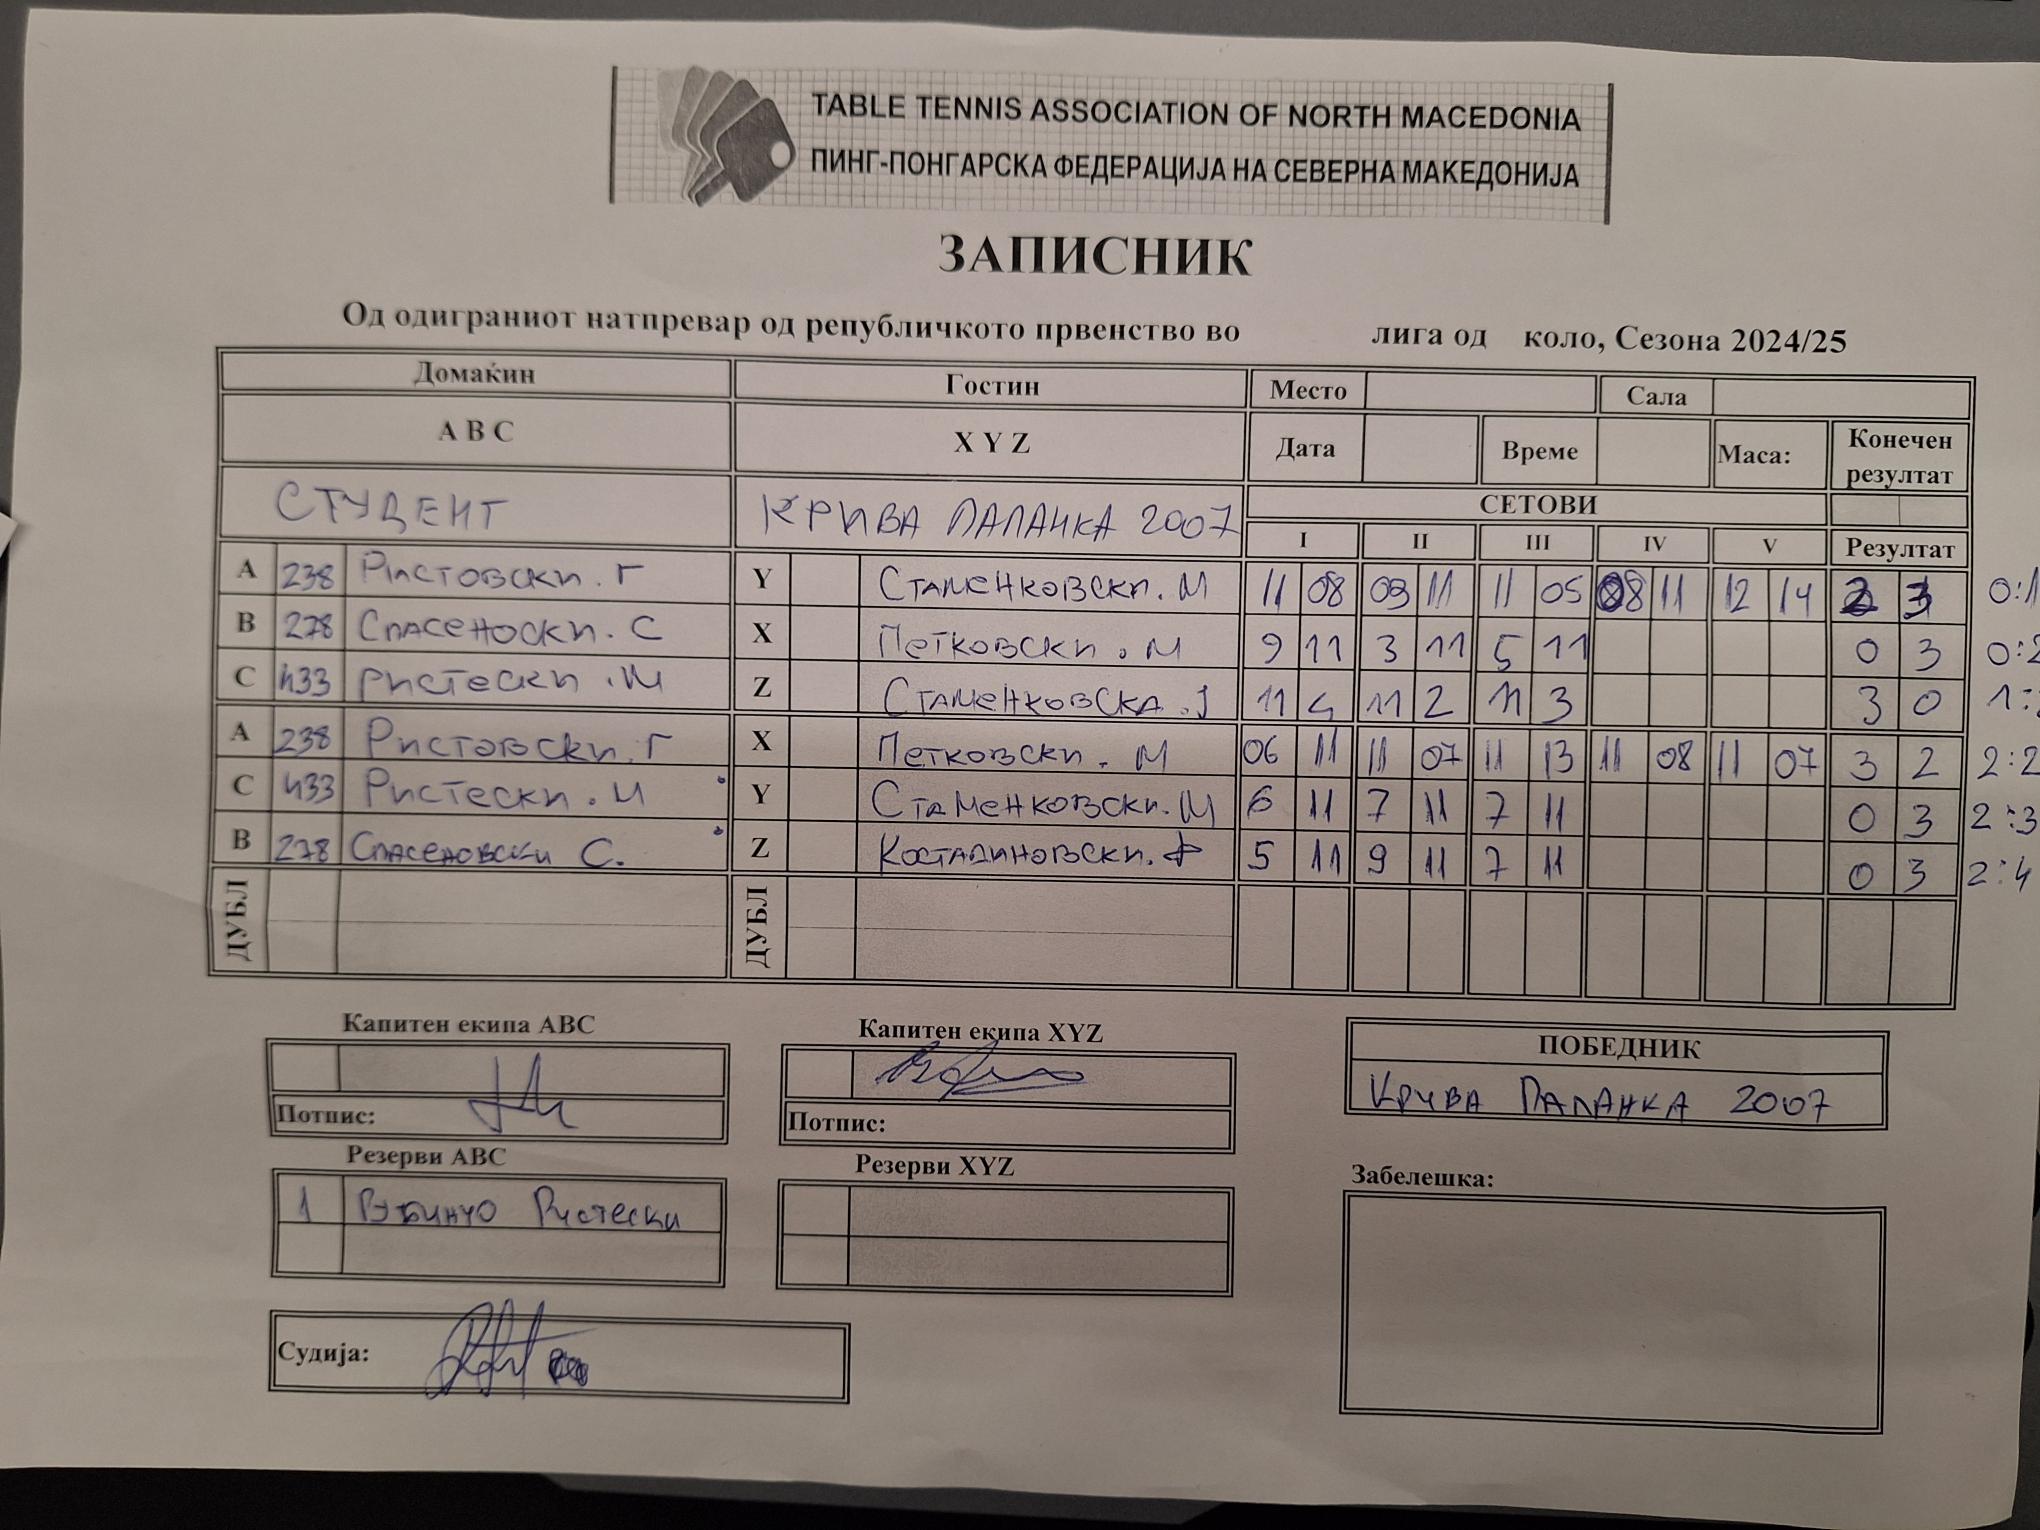 TABLE TENNIS ASSOCIATION OF NORTH MACEDONIA
ПИНГ-ПОНГАРСКА ФЕДЕРАЦИЈА НА СЕВЕРНА МАКЕДОНИЈА
ЗАПИСНИК
Од одиграниот натпревар од републичкото првенство во лига од коло, Сезона 2024/25
Домаќин Гостин Место Сала
A B C X Y Z Дата Време Маса: Конечен резултат
СТУДЕНТ КРИВА ПАЛАНКА 2007 СЕТОВИ
I II III IV V Резултат
A 238 Ристовски. Г Y Стаменковски. М 11 08 09 11 11 05 08 11 12 14 2 3 0:1
B 278 Спасеноски. С X Петковски. М 9 11 3 11 5 11 0 3 0:2
C 433 Ристески. М Z Стаменковска. Ј 11 4 11 2 11 3 3 0 1:
A 238 Ристовски. Г X Петковски. М 06 11 11 07 11 13 11 08 11 07 3 2 2:2
C 433 Ристески. М Y Стаменковски. М 6 11 7 11 7 11 0 3 2:3
B 278 Спасеновски С. Z Костадиновски. Ф 5 11 9 11 7 11 0 3 2:4
ДУБЛ ДУБЛ
Капитен екипа ABC Капитен екипа XYZ ПОБЕДНИК
Крива Паланка 2007
Потпис: Потпис:
Резерви ABC Резерви XYZ Забелешка:
1 Ристески
Судија: